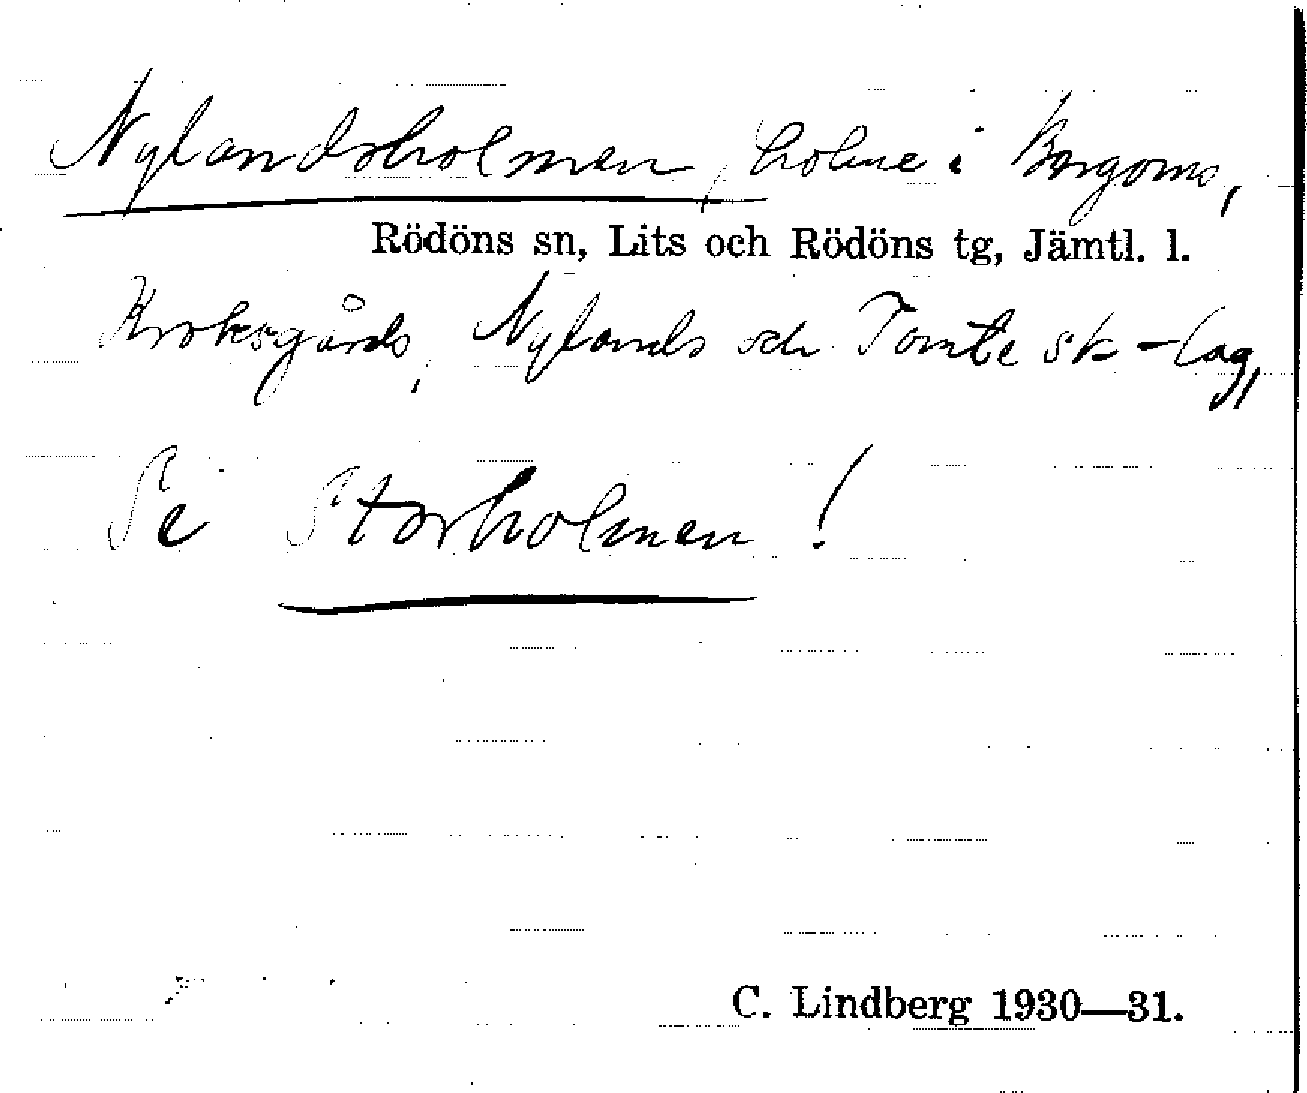 Nylandsholmen, holme i Borgoms,
Rödöns sn, Lits och Rödöns tg, Jämtl. l.
Kroksgårds, Nylands och Tomte sk-lag,
Se Storholmen!
C. Lindberg 1930—31.